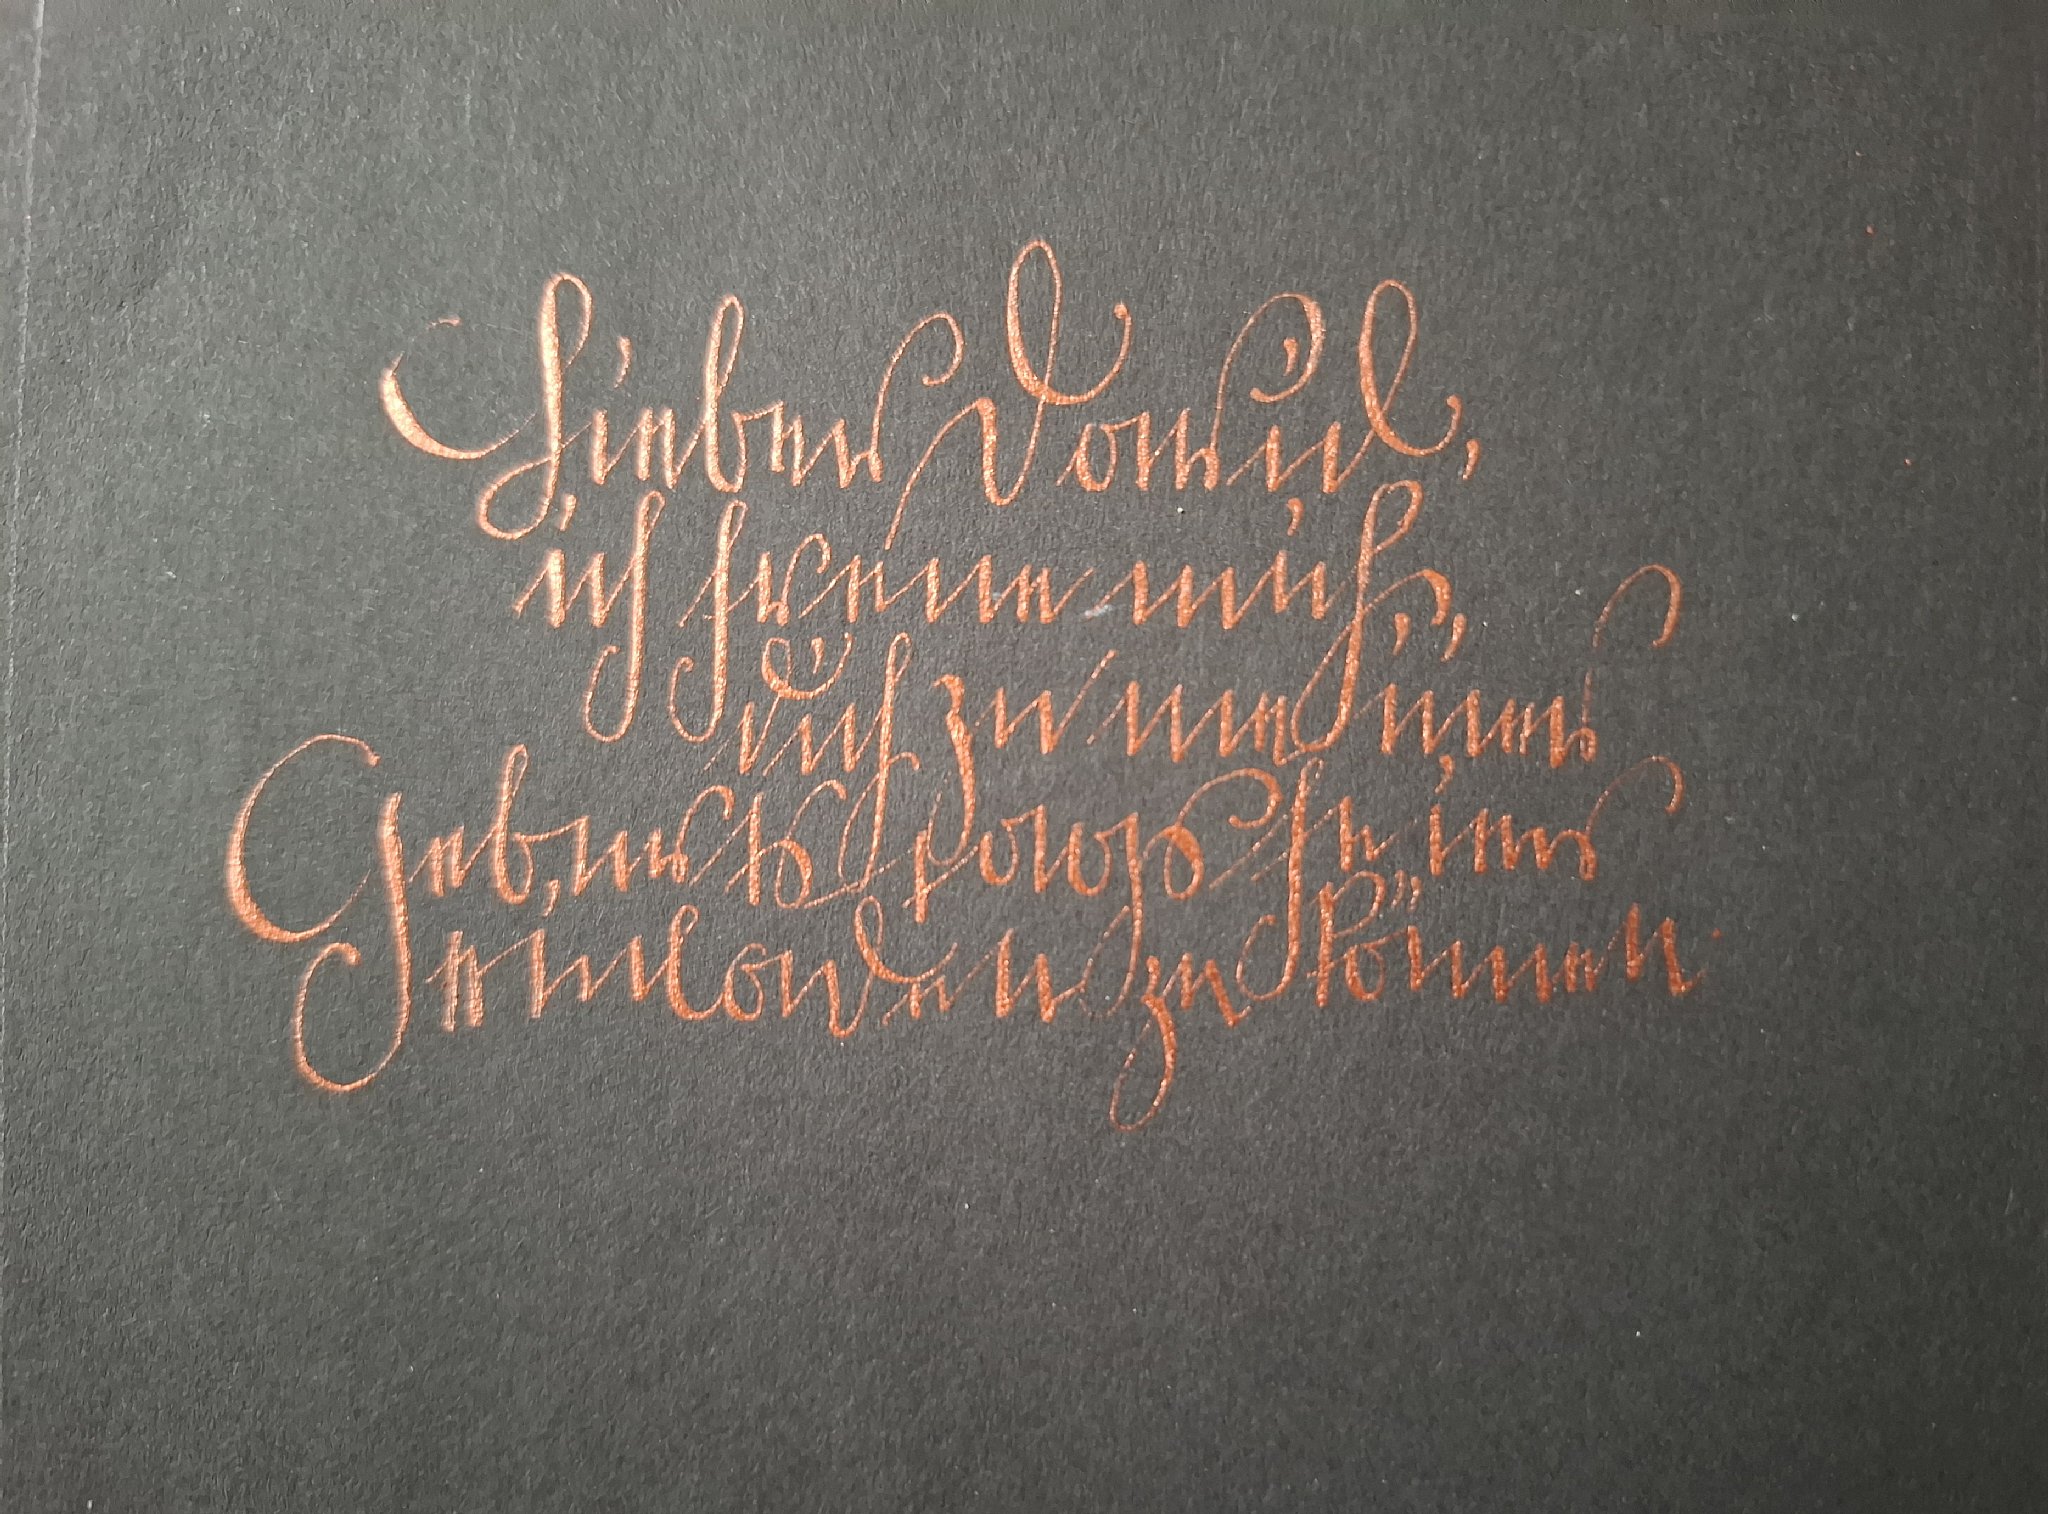 Lieber David,
ich freue mich,
dich zu meiner
Geburtstagsfeier
einladen zu können.